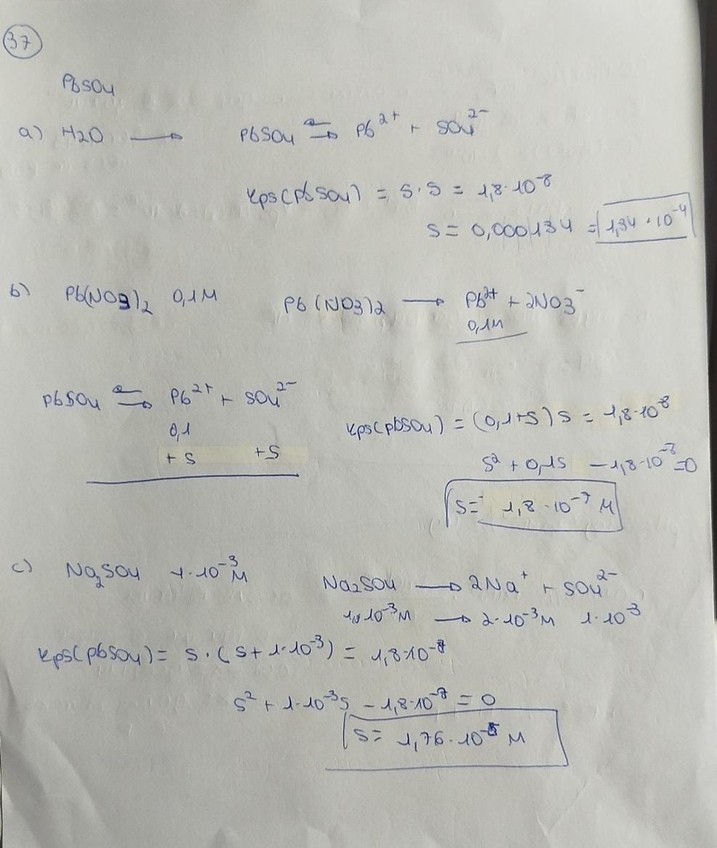 37
PbSO4
a) H2O → PbSO4 ⇌ Pb²⁺ + SO4²⁻
Kps(PbSO4) = s·s = 1,8·10⁻⁸
s = 0,000134 = 1,34·10⁻⁴
b) Pb(NO3)2 0,1M Pb(NO3)2 → Pb²⁺ + 2NO3⁻
0,1M
PbSO4 ⇌ Pb²⁺ + SO4²⁻
0,1
+s +s
Kps(PbSO4) = (0,1+s)s = 1,8·10⁻⁸
s² + 0,1s - 1,8·10⁻⁸ = 0
s = 1,8·10⁻⁷ M
c) Na2SO4 1·10⁻³M Na2SO4 → 2Na⁺ + SO4²⁻
1·10⁻³M → 2·10⁻³M 1·10⁻³
Kps(PbSO4) = s·(s+1·10⁻³) = 1,8·10⁻⁸
s² + 1·10⁻³s - 1,8·10⁻⁸ = 0
s = 1,76·10⁻⁵ M